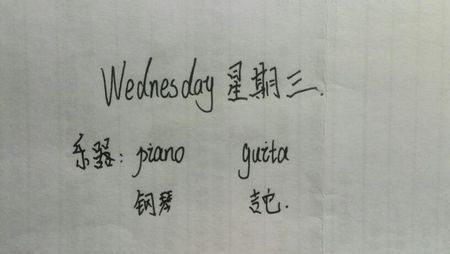 Wednesday 星期三.
乐器: piano guita
钢琴 吉它.